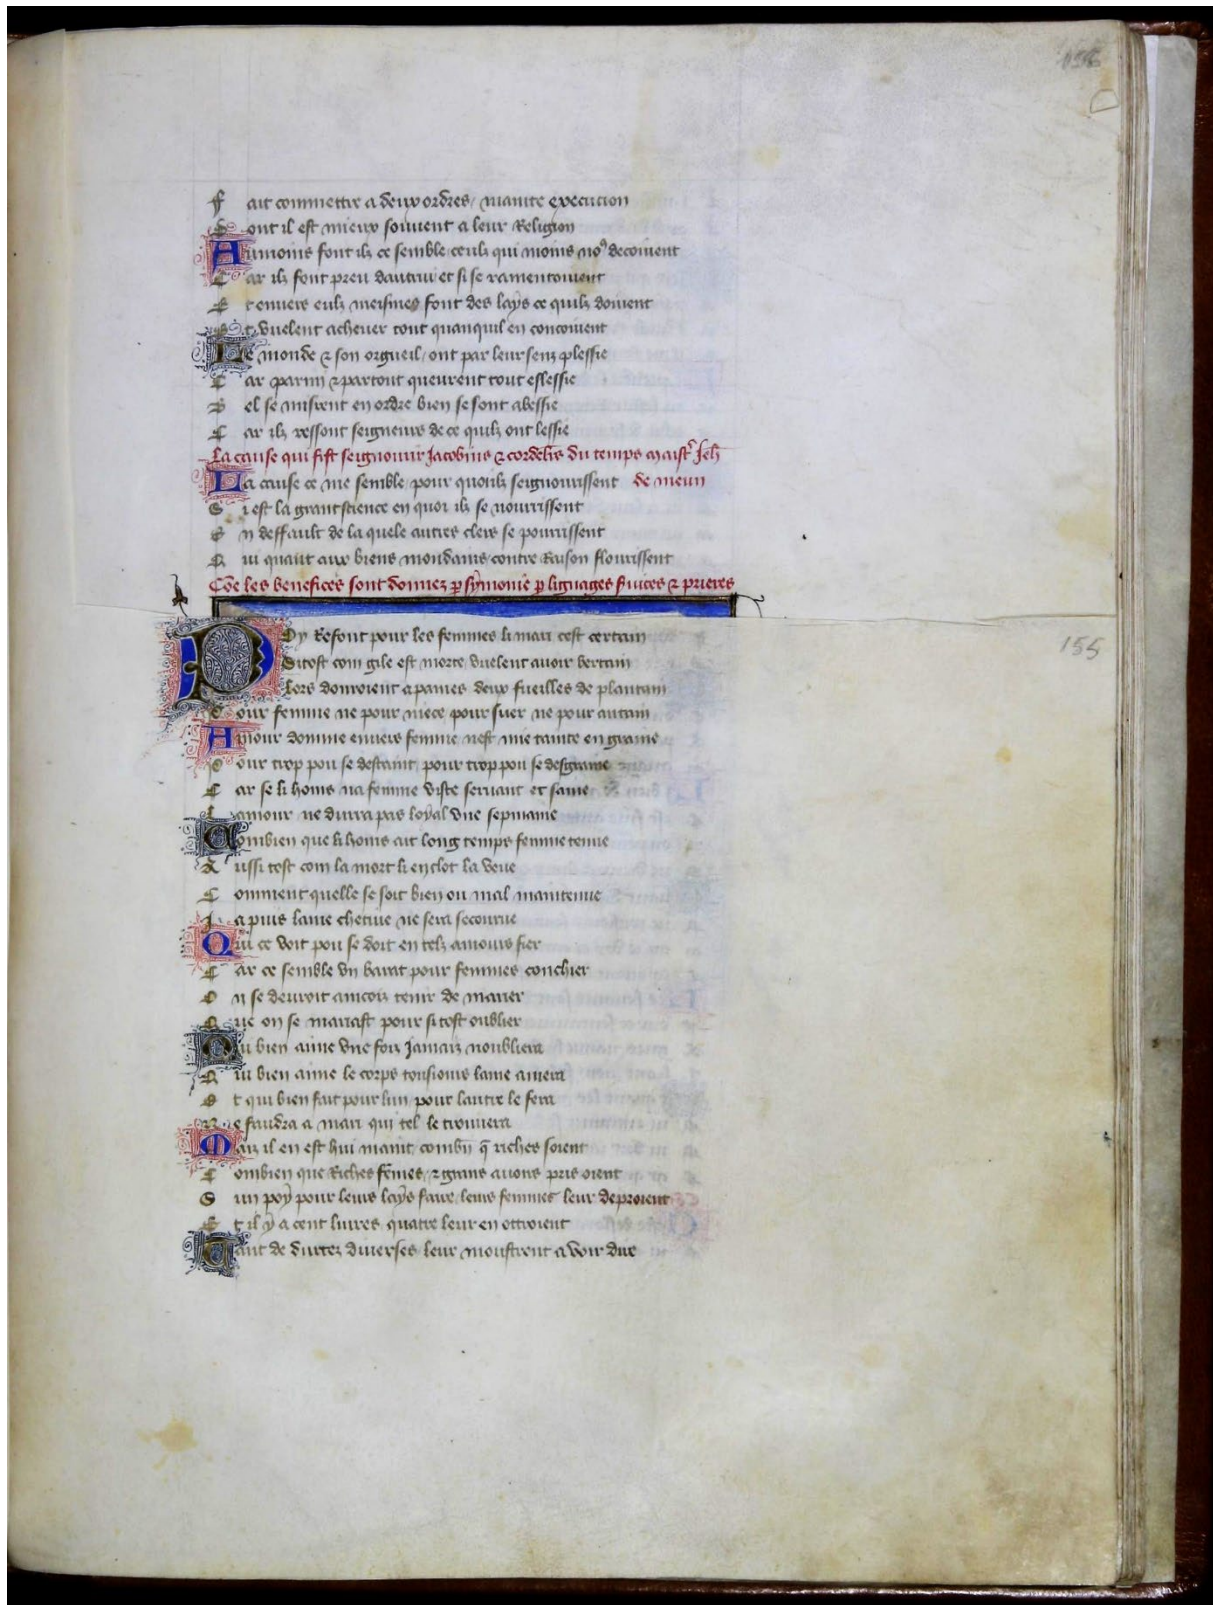 156
F ait commettre a deux ordres / mainte execucion
D ont il est mieux souuent a leur Religion
Aumoins font ilz ce semble ceulz qui moins noꝰ decoiuent
C ar ilz font preu dautrui et si se ramentoiuent
E t enuers eulz meismes font des lays ce quilz doiuent
E t vuelent acheuer tout quanquil en concoiuent
Le monde & son orgueil / ont par leur senz plessie
C ar parmi & partout queurent tout eslessie
B el se mistrent en ordre bien se sont abessie
C ar ilz ressont seigneurs de ce quilz ont lessie
La cause qui fist seignourir Jacobins & cordelrs du temps maistre Jeh
La cause ce me semble pour quoi ilz seignourissent de meun
S i est la grant science en quoi ilz se nourrissent
E n deffault de la quele autres clers se pourrissent
Q ui quant aux biens mondains contre Raison flourissent
Come les benefices sont donnez p symonie p lignages suices & prieres
155
Poy Refont pour les femmes li mari cest certain
Sitost com gile est morte vuelent auoir bertain
Lors donroient a paines deux fueilles de plantain
P our femme ne pour niece pour suer ne pour antain
Amour domme enuers femme nest mie tainte en graine
P our trop pou se destaint pour trop pou se desgraine
C ar se li homs na femme viste seruant et saine
L amour ne durra pas loyal vne sepmaine
Combien que li homs ait long temps femme tenue
A ussi tost com la mort li enclot la veue
C omment quelle se soit bien ou mal maintenue
J a puis lame chetiue ne sera secourue
Qui ce voit pou se doit en telz amours fier
C ar ce semble vn barat pour femmes conchier
O n se deuroit aincois tenir de marier
Q ue on se mariast pour si tost oublier
Qui bien aime vne foiz Jamaiz noubliera
Q ui bien aime le corps tousiours lame amera
E t qui bien fait pour lun pour lautre le fera
N e faudra a mari qui tel le trouuera
Maiz il en est hui maint combn q̃ riches soient
C ombien que Riches fẽmes / & grans auoirs pris oient
S un poy pour leurs lays faire leurs femmes leur deproient
E t il y a cent liures quatre leur en ottroient
Tant de durtez diuerses leur moustrent a voir dire